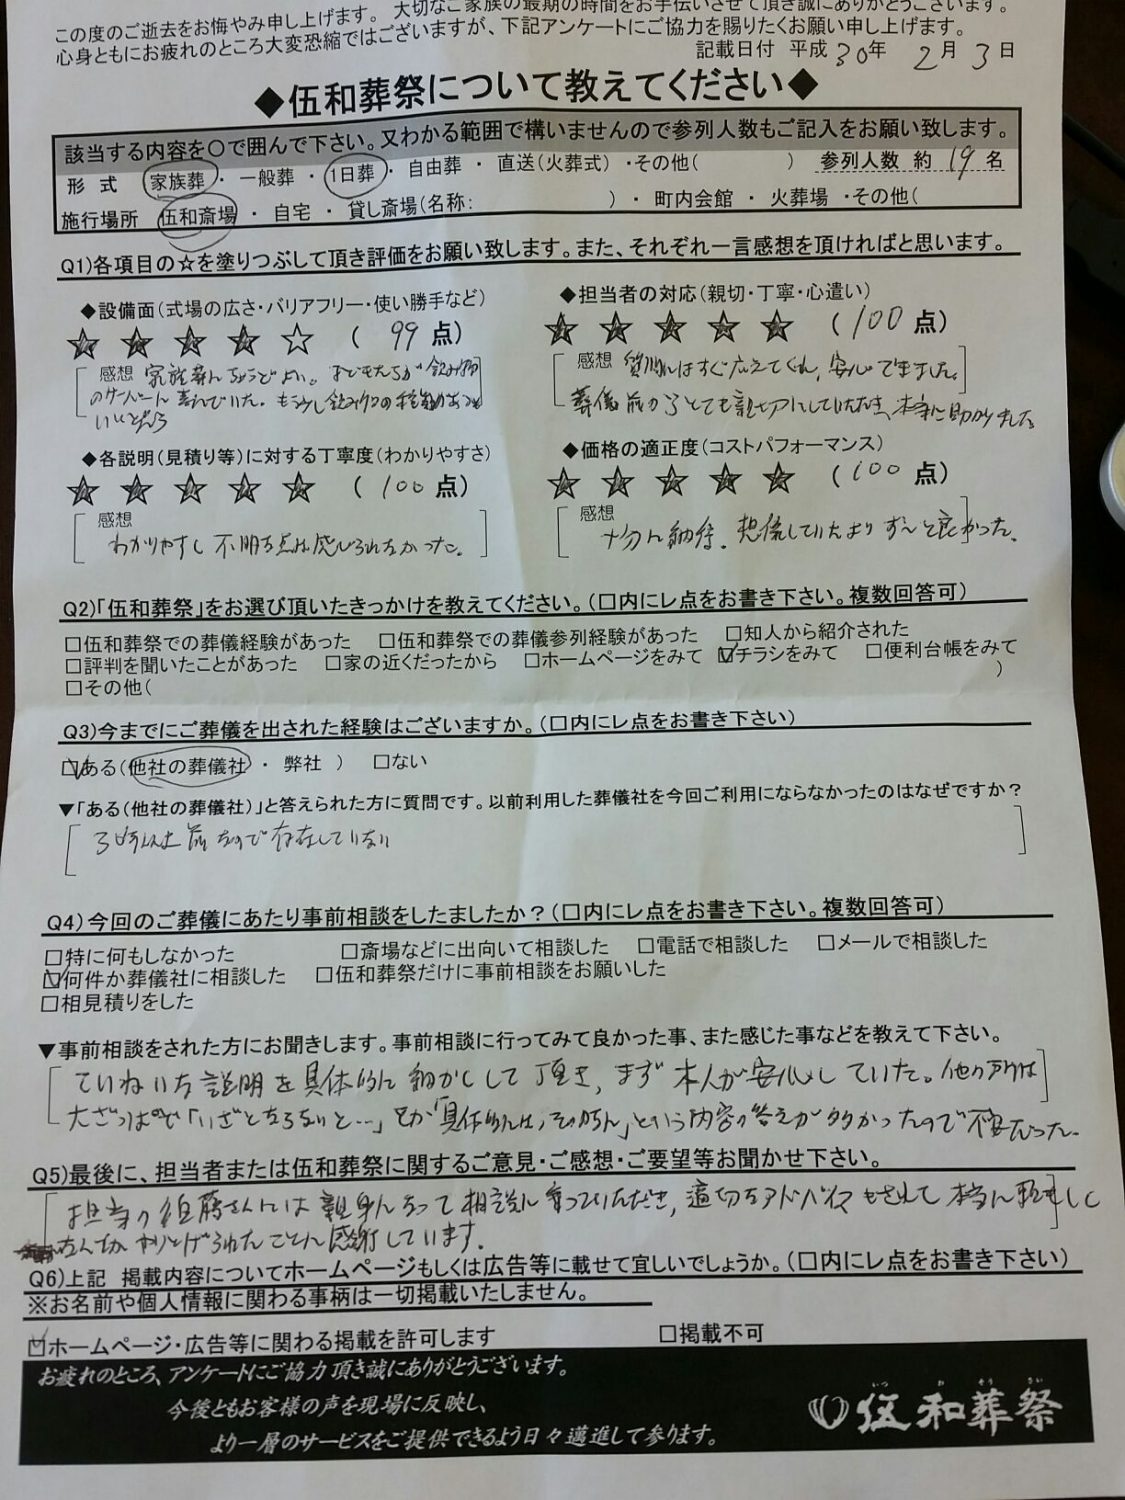 この度のご逝去をお悔やみ申し上げます。大切なご家族の最期の時間をお手伝いさせて頂き誠にありがとうございます。
心身ともにお疲れのところ大変恐縮ではございますが、下記アンケートにご協力を賜りたくお願い申し上げます。
記載日付 平成30年 2月 3日
◆伍和葬祭について教えてください◆
該当する内容を○で囲んで下さい。又わかる範囲で構いませんので参列人数もご記入をお願い致します。
形 式 家族葬・一般葬・1日葬・自由葬・直送(火葬式)・その他( ) 参列人数 約 19 名
施行場所 伍和斎場・自宅・貸し斎場(名称: )・町内会館・火葬場・その他(
Q1)各項目の☆を塗りつぶして頂き評価をお願い致します。また、それぞれ一言感想を頂ければと思います。
◆設備面(式場の広さ・バリアフリー・使い勝手など)
★★★★☆ ( 99 点)
感想 家族葬にちょうどよい。子どもたちが飲み物
のサーバーに喜んでいた。もう少し飲み物の種類があると
いいと
◆担当者の対応(親切・丁寧・心遣い)
★★★★★ (100 点)
感想 質問にはすぐ応えてくれ、安心できました。
葬儀前からとても親切にしていただき、本当に助かりました。
◆各説明(見積り等)に対する丁寧度(わかりやすさ)
★★★★★ (100 点)
感想
わかりやすく不明な点は感じられなかった。
◆価格の適正度(コストパフォーマンス)
★★★★★ (100 点)
感想
十分に納得。想像していたよりずーっと良かった。
Q2)「伍和葬祭」をお選び頂いたきっかけを教えてください。(□内にレ点をお書き下さい。複数回答可)
□伍和葬祭での葬儀経験があった □伍和葬祭での葬儀参列経験があった □知人から紹介された
□評判を聞いたことがあった □家の近くだったから □ホームページをみて ☑チラシをみて □便利台帳をみて
□その他( )
Q3)今までにご葬儀を出された経験はございますか。(□内にレ点をお書き下さい)
☑ある(他社の葬儀社・弊社 ) □ない
▼「ある(他社の葬儀社)」と答えられた方に質問です。以前利用した葬儀社を今回ご利用にならなかったのはなぜですか?
前なので存在していない
Q4)今回のご葬儀にあたり事前相談をしたましたか?(□内にレ点をお書き下さい。複数回答可)
□特に何もしなかった □斎場などに出向いて相談した □電話で相談した □メールで相談した
☑何件か葬儀社に相談した □伍和葬祭だけに事前相談をお願いした
□相見積りをした
▼事前相談をされた方にお聞きします。事前相談に行ってみて良かった事、また感じた事などを教えて下さい。
ていねいな説明を具体的に細かくして頂き、まず本人が安心していた。他の所は
大ざっぱで「いざとならないと…」とか「具体的には、その時に」という内容の答えが多かったので不安だった。
Q5)最後に、担当者または伍和葬祭に関するご意見・ご感想・ご要望等お聞かせ下さい。
担当の佐藤さんには親身になって相談に乗っていただき、適切なアドバイスもされて本当に
やりとげられたことに感謝しています。
Q6)上記 掲載内容についてホームページもしくは広告等に載せて宜しいでしょうか。(□内にレ点をお書き下さい)
※お名前や個人情報に関わる事柄は一切掲載いたしません。
☑ホームページ・広告等に関わる掲載を許可します □掲載不可
お疲れのところ、アンケートにご協力頂き誠にありがとうございます。
今後ともお客様の声を現場に反映し、
より一層のサービスをご提供できるよう日々邁進して参ります。
伍和葬祭